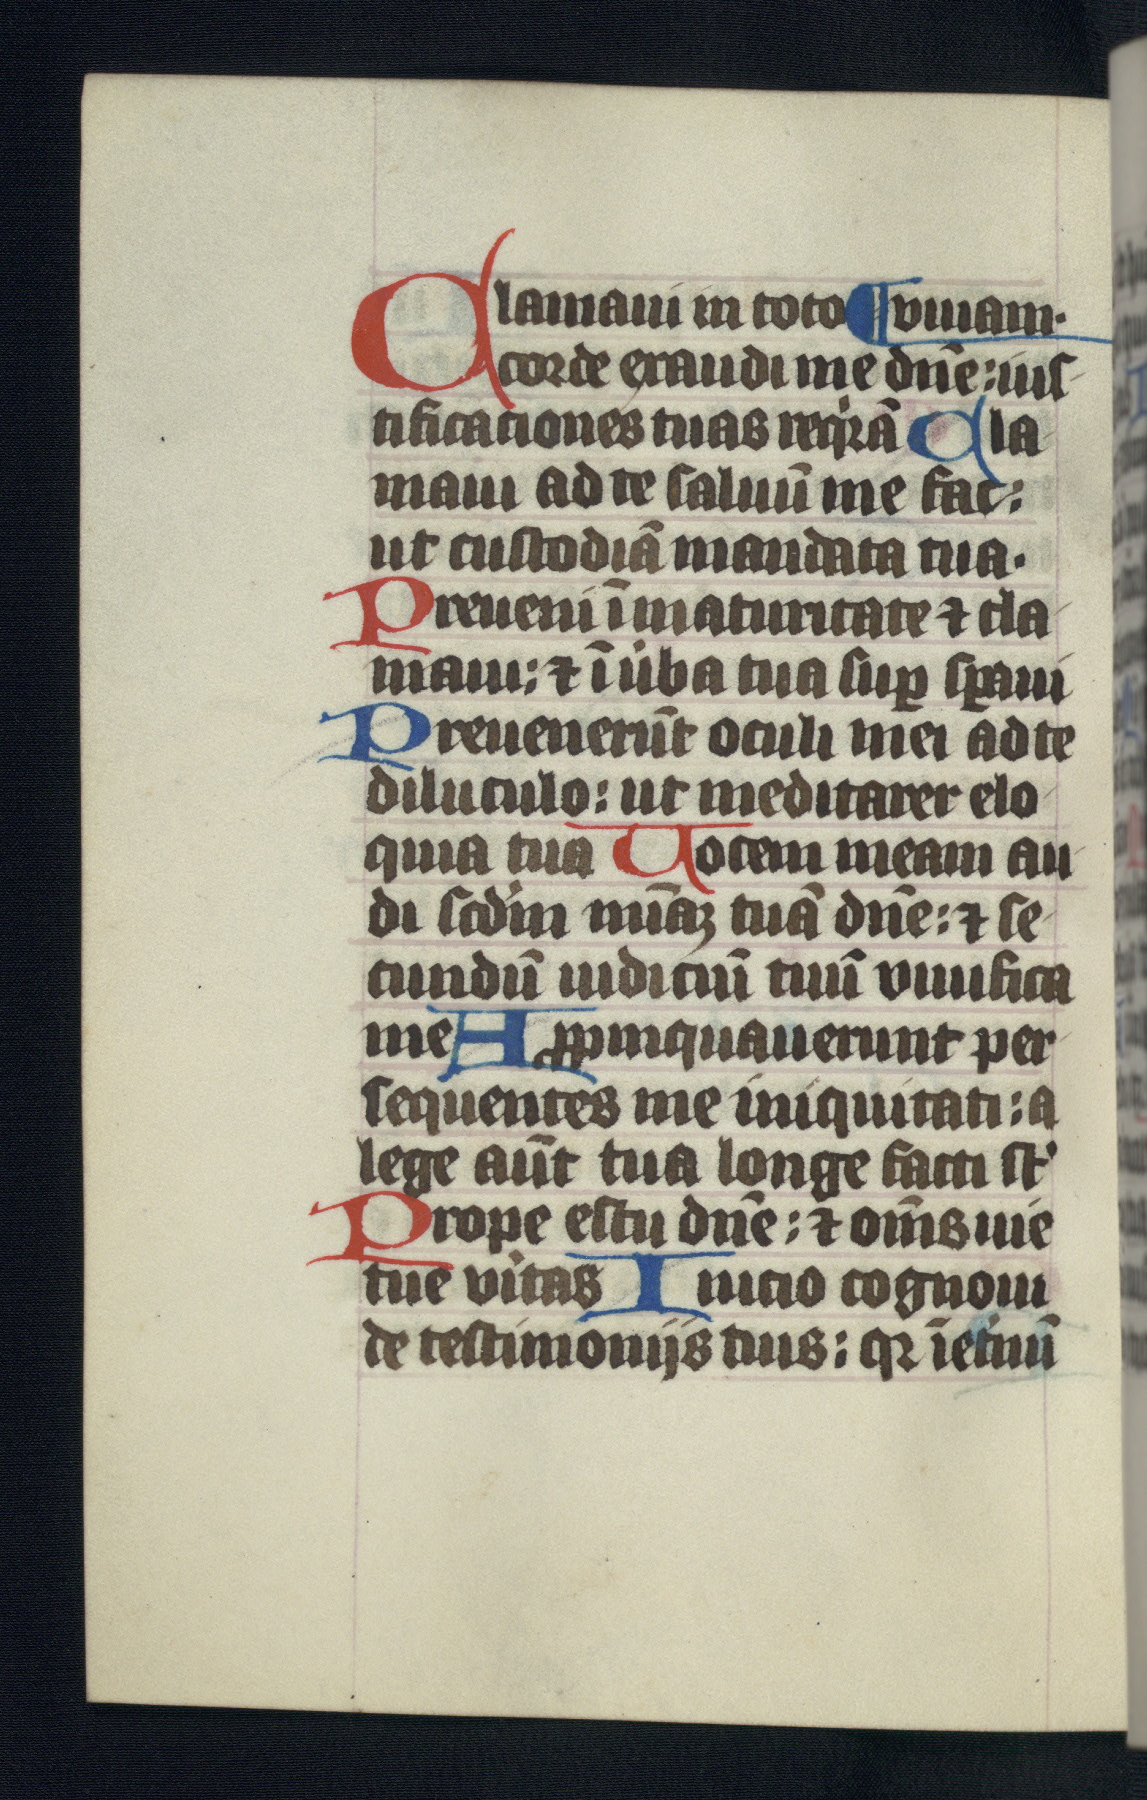 Clamaui in toto ¶ viuam·
corde exaudi me dn̄e: ius-
tificationes tuas req̇rā Cla-
maui ad te saluū me fac:
ut custodiā mandata tua·
Preueni ī maturitate ⁊ cla-
maui: ⁊ ī ūba tua suꝑ sꝑaui
Preuenerūt oculi mei ad te
diluculo: ut meditarer elo-
quia tua Uocem meam au-
di scd̄m mīaꝫ tuā dn̄e: ⁊ se-
cundū iudiciū tuū viuifica
me Apꝓpinquauerunt per-
sequentes me iniquitati: a
lege aūt tua longe facti st̄
Prope es tu dn̄e: ⁊ om̄s uie
tue vītas Inicio cognoui
de testimonijs tuis: qꝛ ī et̄nū